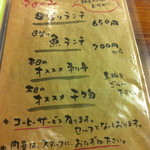 日替りランチ 650円
魚ランチ 700円から
本日の
オススメ 刺身
本日の
オススメ 干物
* コーヒーサービス有ります。
セルフとなっております。
* 内容は、スタッフにおたずね下さい。